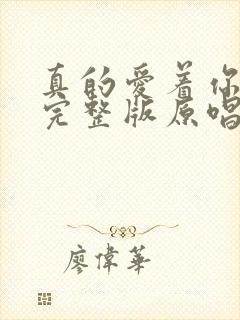 真的愛着你
完整版原唱
廖偉華